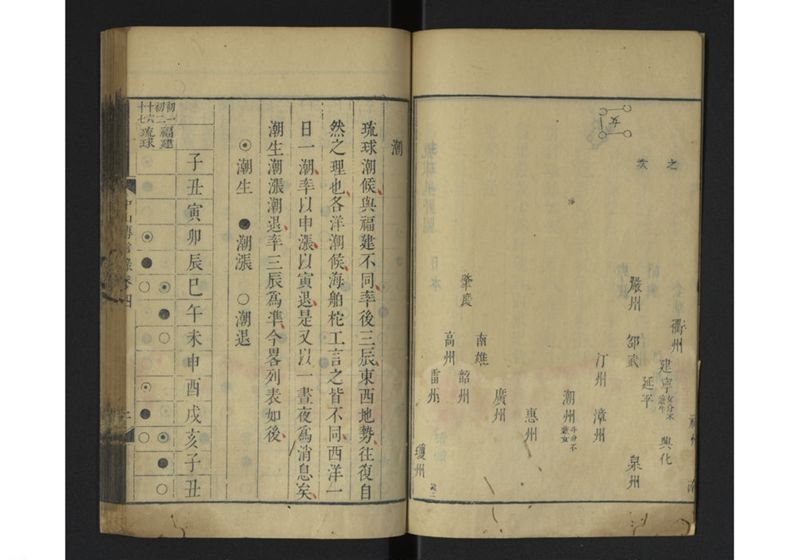 之
次
女
福州
衢州
建寧
女分不
興化
延平
嚴州
邵武
泉州
汀州
漳州
潮州
斗分不
惠州
廣州
南雄
韶州
肇慶
高州
雷州
瓊州
潮
琉球潮候與福建不同率後三辰東西地勢往復自
然之理也各洋潮候海舶柁工言之皆不同西洋一
日一潮率以申漲以寅退是又以一晝夜爲消息矣
潮生潮漲潮退率三辰爲準今畧列表如後
◉潮生 ●潮漲 ○潮退
子丑寅卯辰巳午未申酉戌亥子丑
初一
初二
十六
十七
福建
琉球
中山傳信錄卷四